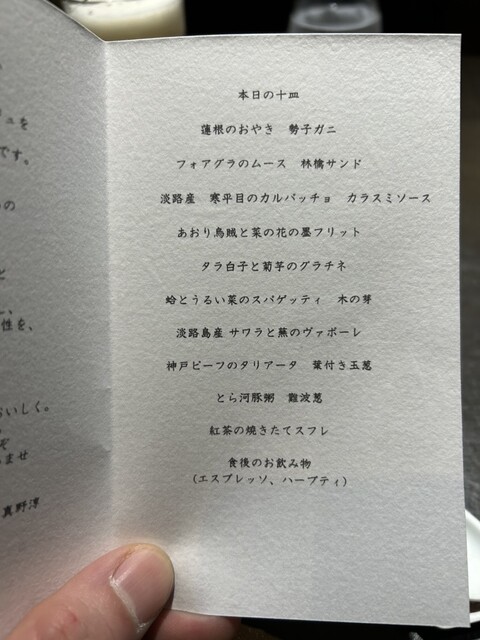 ュを
です。
の
と
い、
性を、
おいしく。
ぞ
ませ
真野淳
本日の十皿
蓮根のおやき　勢子ガニ
フォアグラのムース　林檎サンド
淡路産　寒平目のカルパッチョ　カラスミソース
あおり烏賊と菜の花の墨フリット
タラ白子と菊芋のグラチネ
蛤とうるい菜のスパゲッティ　木の芽
淡路島産 サワラと蕪のヴァポーレ
神戸ビーフのタリアータ　葉付き玉葱
とら河豚粥　難波葱
紅茶の焼きたてスフレ
食後のお飲み物
（エスプレッソ、ハーブティ）